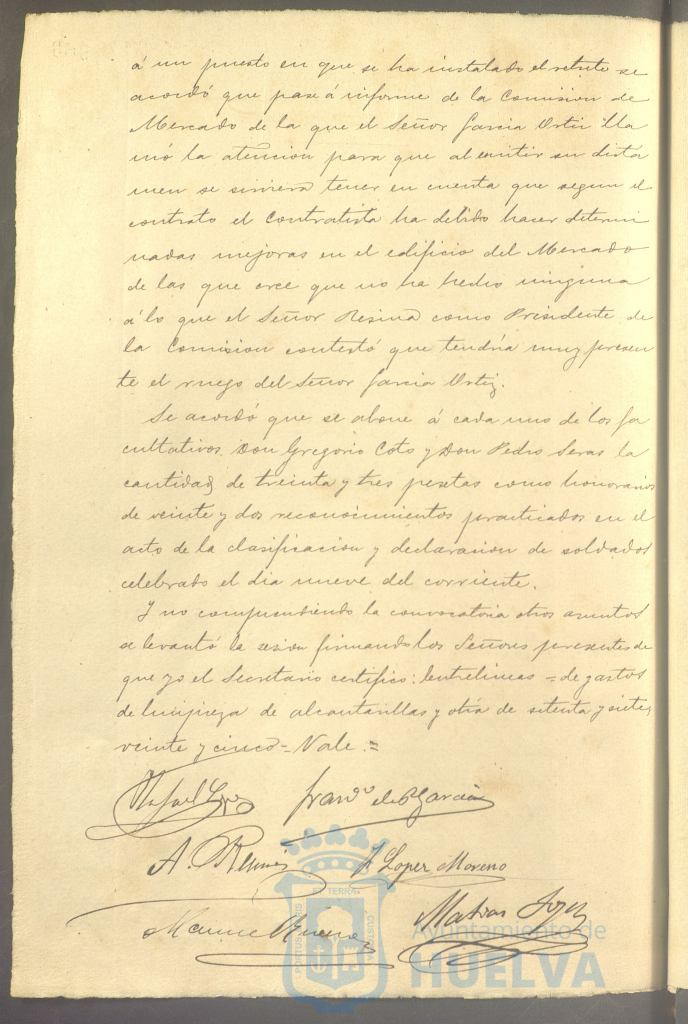 á un puesto en que se ha instalado el retrete se
acordó que pase á informe de la Comision de
Mercado de la que el Señor Garcia Ortiz lla
mó la atencion para que al emitir su dicta
men se sirviera tener en cuenta que segun el
contrato el Contratista ha debido hacer determi
nadas mejoras en el edificio del Mercado
de las que cree que no ha hecho ninguna
a lo que el Señor Resina como Presidente de
la Comision contestó que tendria muy presen
te el ruego del Señor Garcia Ortiz.
Se acordó que se abone á cada uno de los fa
cultativos Don Gregorio Coto y Don Pedro Seras la
cantidad de treinta y tres pesetas como honorarios
de veinte y dos reconocimientos practicados en el
acto de la clasificacion y declaracion de soldados
celebrado el dia nueve del corriente.
Y no comprendiendo la convocatoria otros asuntos
se levantó la sesion firmando los Señores presentes de
que yo el Secretario certifico: Entrelineas = de gastos
de limpieza de alcantarillas y otra de setenta y siete,
veinte y cinco = Vale =
Rafael Lopez Fran.co de P. Garcia
A. Resina J. Lopez Moreno
Matias
PORTUS MARIS ET TERRAE CUSTODIA
Ayuntamiento de
HUELVA